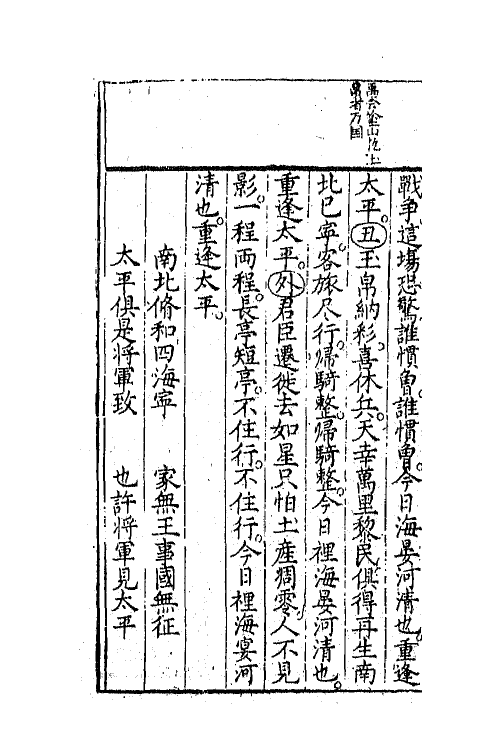 塗山
帛者万国
戰争這塲恐驚。誰慣曾。誰慣曾。今日海晏河清也。重逢
太平。丑王帛納彩。喜休兵。天幸萬里黎民俱得再生。南
北已寧。客旅尽行。歸騎整。歸騎整。今日裡海晏河清也。
重逢太平。外君臣遷徙去如星。只怕土産凋零。人不見
影。一程兩程。長亭短亭。不住行。不住行。今日裡海宴河
清也。重逢太平。
南北脩和四海寧 家無王事國無征
太平俱是将軍致 也許将軍見太平